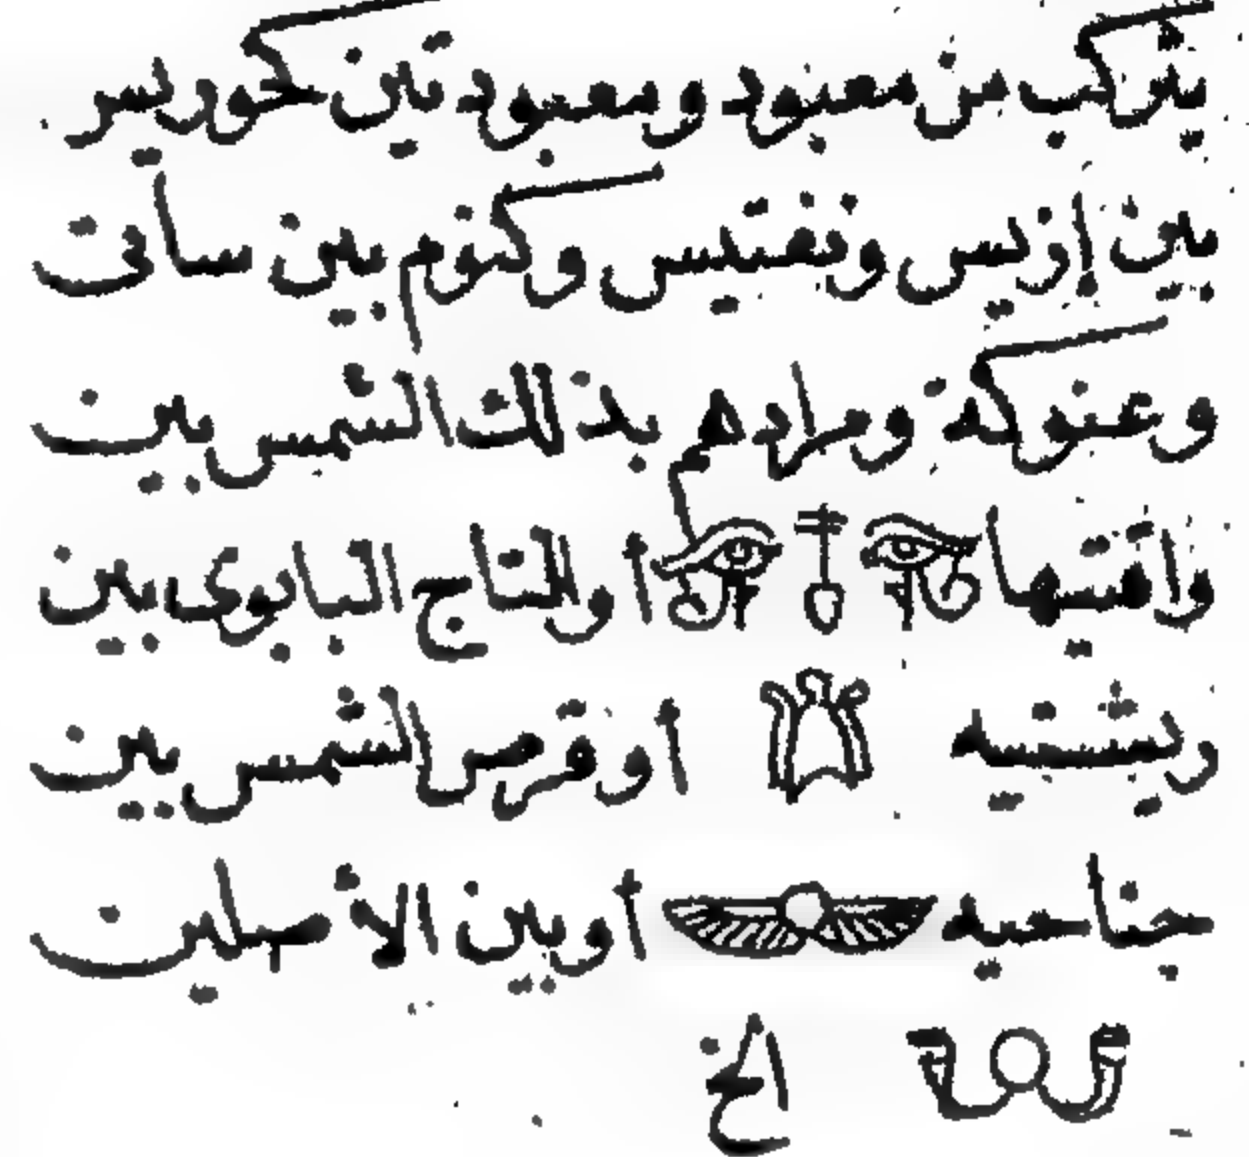 يتركب من معبود ومعبودتين كحوريس
بين إزيس ونفتيس وكنوم بين سأتى
وعنوكة ومرادهم بذلك الشمس بين
واقتيها أو التاج البابوى بين
ريشتيه أو قرص الشمس بين
جناحيه أو بين الأصلين
الخ